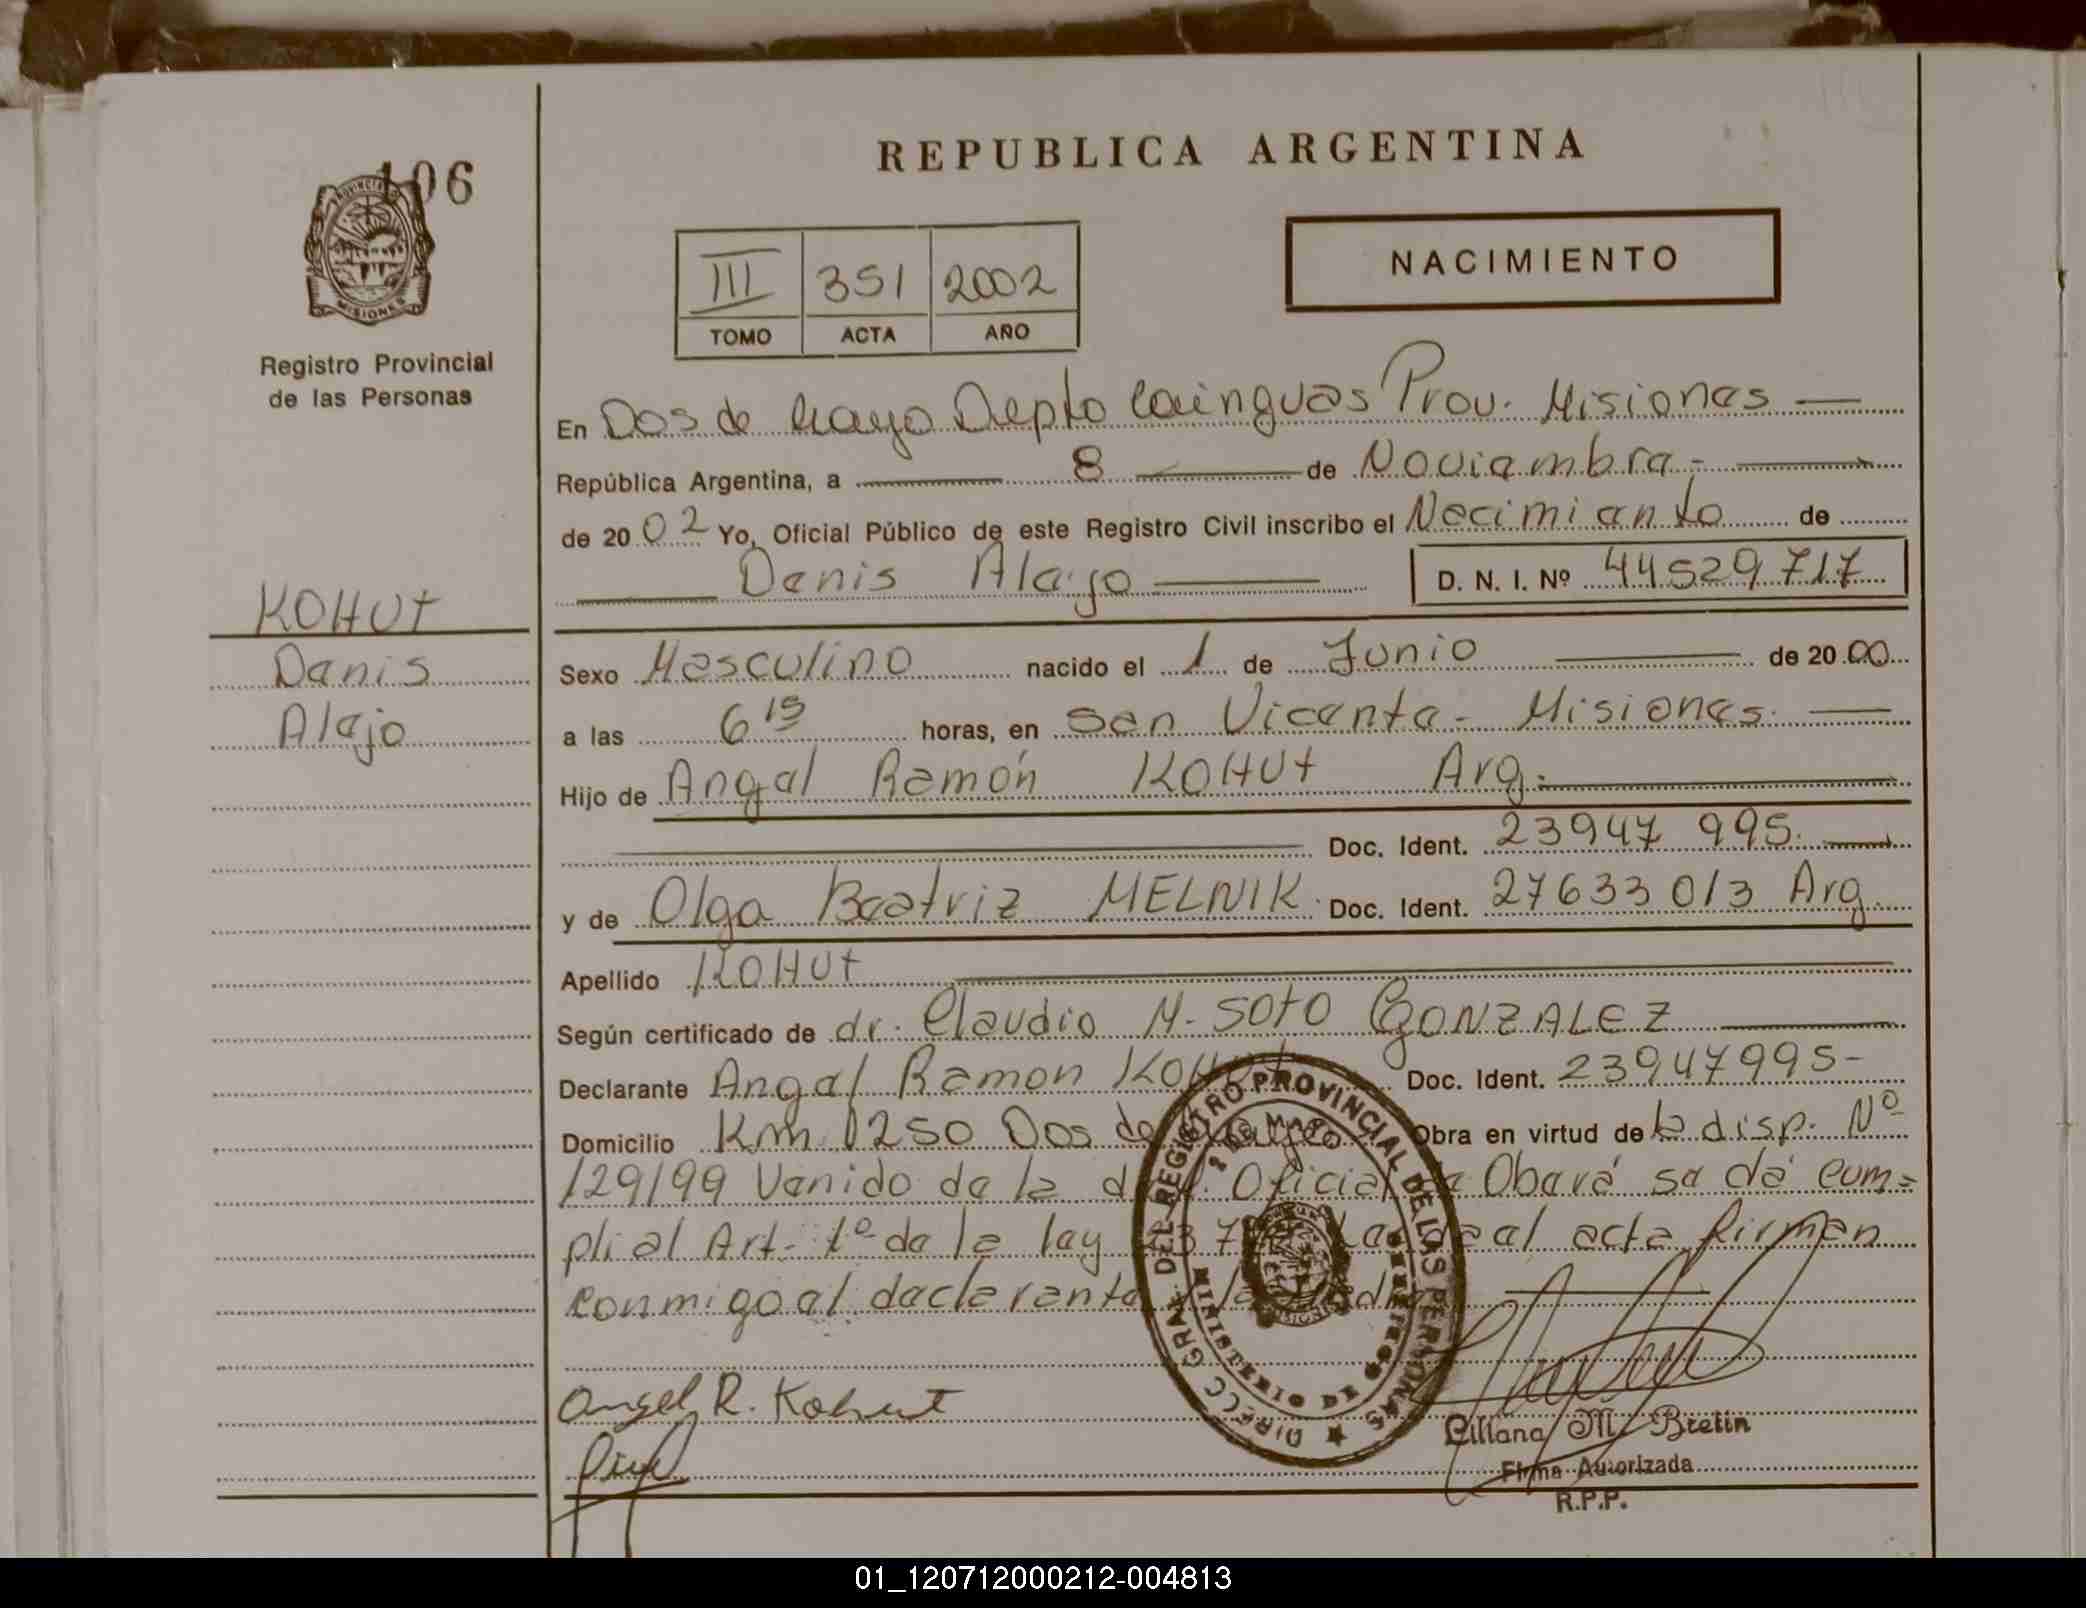 REPUBLICA ARGENTINA
106
PROVINCIA
MISIONES
Registro Provincial
de las Personas
III 351 2002
TOMO ACTA AÑO
NACIMIENTO
En Dos de Mayo Depto Cainguas Prov. Misiones
República Argentina, a 8 de Noviembre.-
de 2002 Yo, Oficial Público de este Registro Civil inscribo el Nacimiento de
Denis Alejo D. N. I. Nº 44529717
KOHUt
Denis
Alejo
Sexo Masculino nacido el 1 de Junio de 2000
a las 6 15 horas, en San Vicente - Misiones.
Hijo de Angel Ramón KOHUt Arg.
Doc. Ident. 23947 995.
y de Olga Beatriz MELNIK. Doc. Ident. 27633 013 Arg.
Apellido KOHUt
Según certificado de dr. Claudio M. SOtO GONZALEZ
Declarante Angel Ramon KOHUt Doc. Ident. 23947995-
Domicilio Km 1250 Dos de Mayo Obra en virtud de la disp. Nº
129/99 Venido de la Oficial de Oberá se dá cum=
pli al Art. 1º de la ley acta firman
conmigo el declarante
DIRECC. GRAL. DEL REGISTRO PROVINCIAL DE LAS PERSONAS
2 DE MAYO
MINISTERIO DE GOBIERNO
MISIONES
Angel R. Kohut
Liliana M. Bretin
Firma Autorizada
R.P.P.
01_120712000212-004813